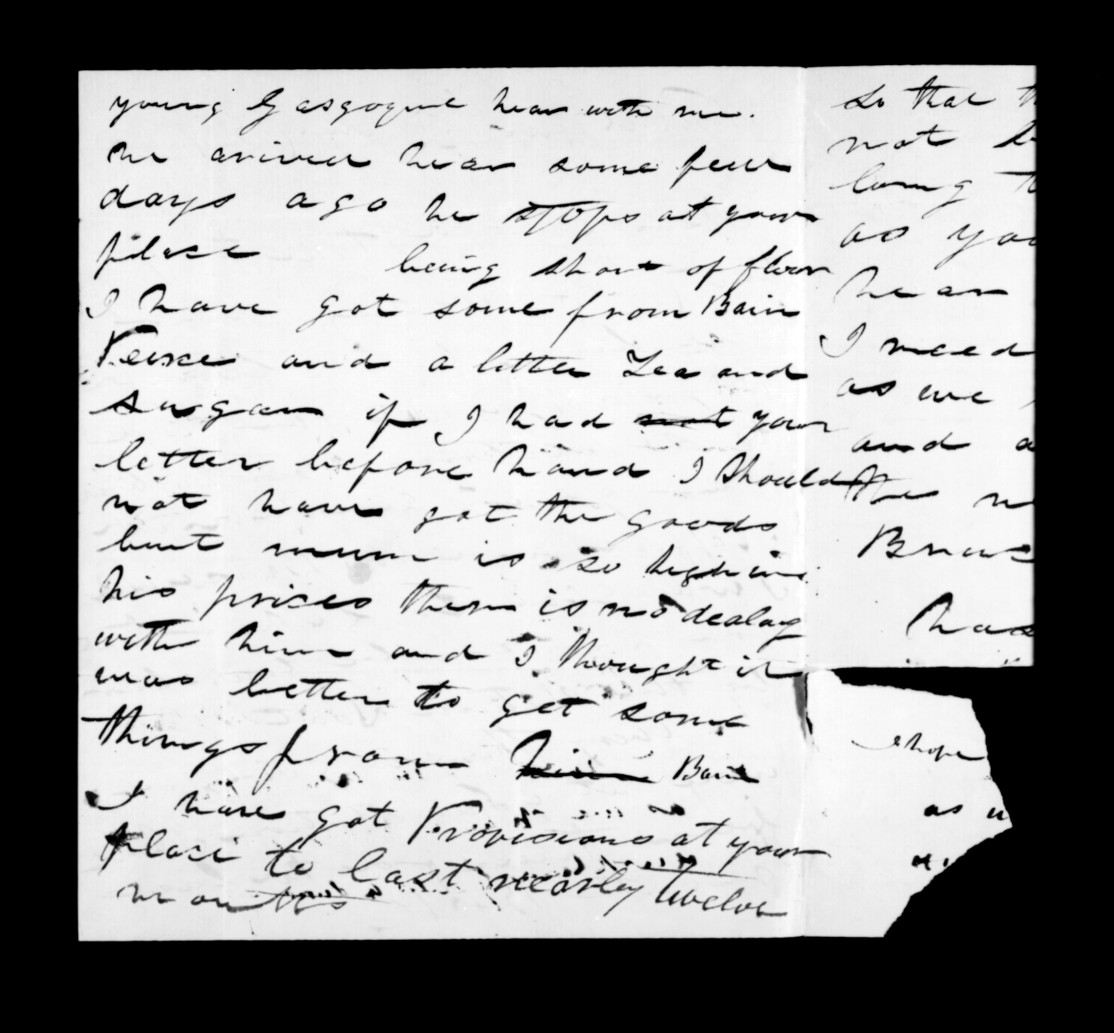 young Gasgoque hear with me.
he arived hear some few
days ago he stops at your
place being short of flour
I have got some from Bain
Peirce and a letter Tea and
sugar if I had not your
letter before hand I should
not have got the goods
but mum is so high in
his prices there is no dealing
with him and I thought it
was better to get some
things from him Bain
I have got Provisions at your
place to last nearly twelve
months
so that
not
long
as you
hear
I need
as we
and a
the

has
I hope
as